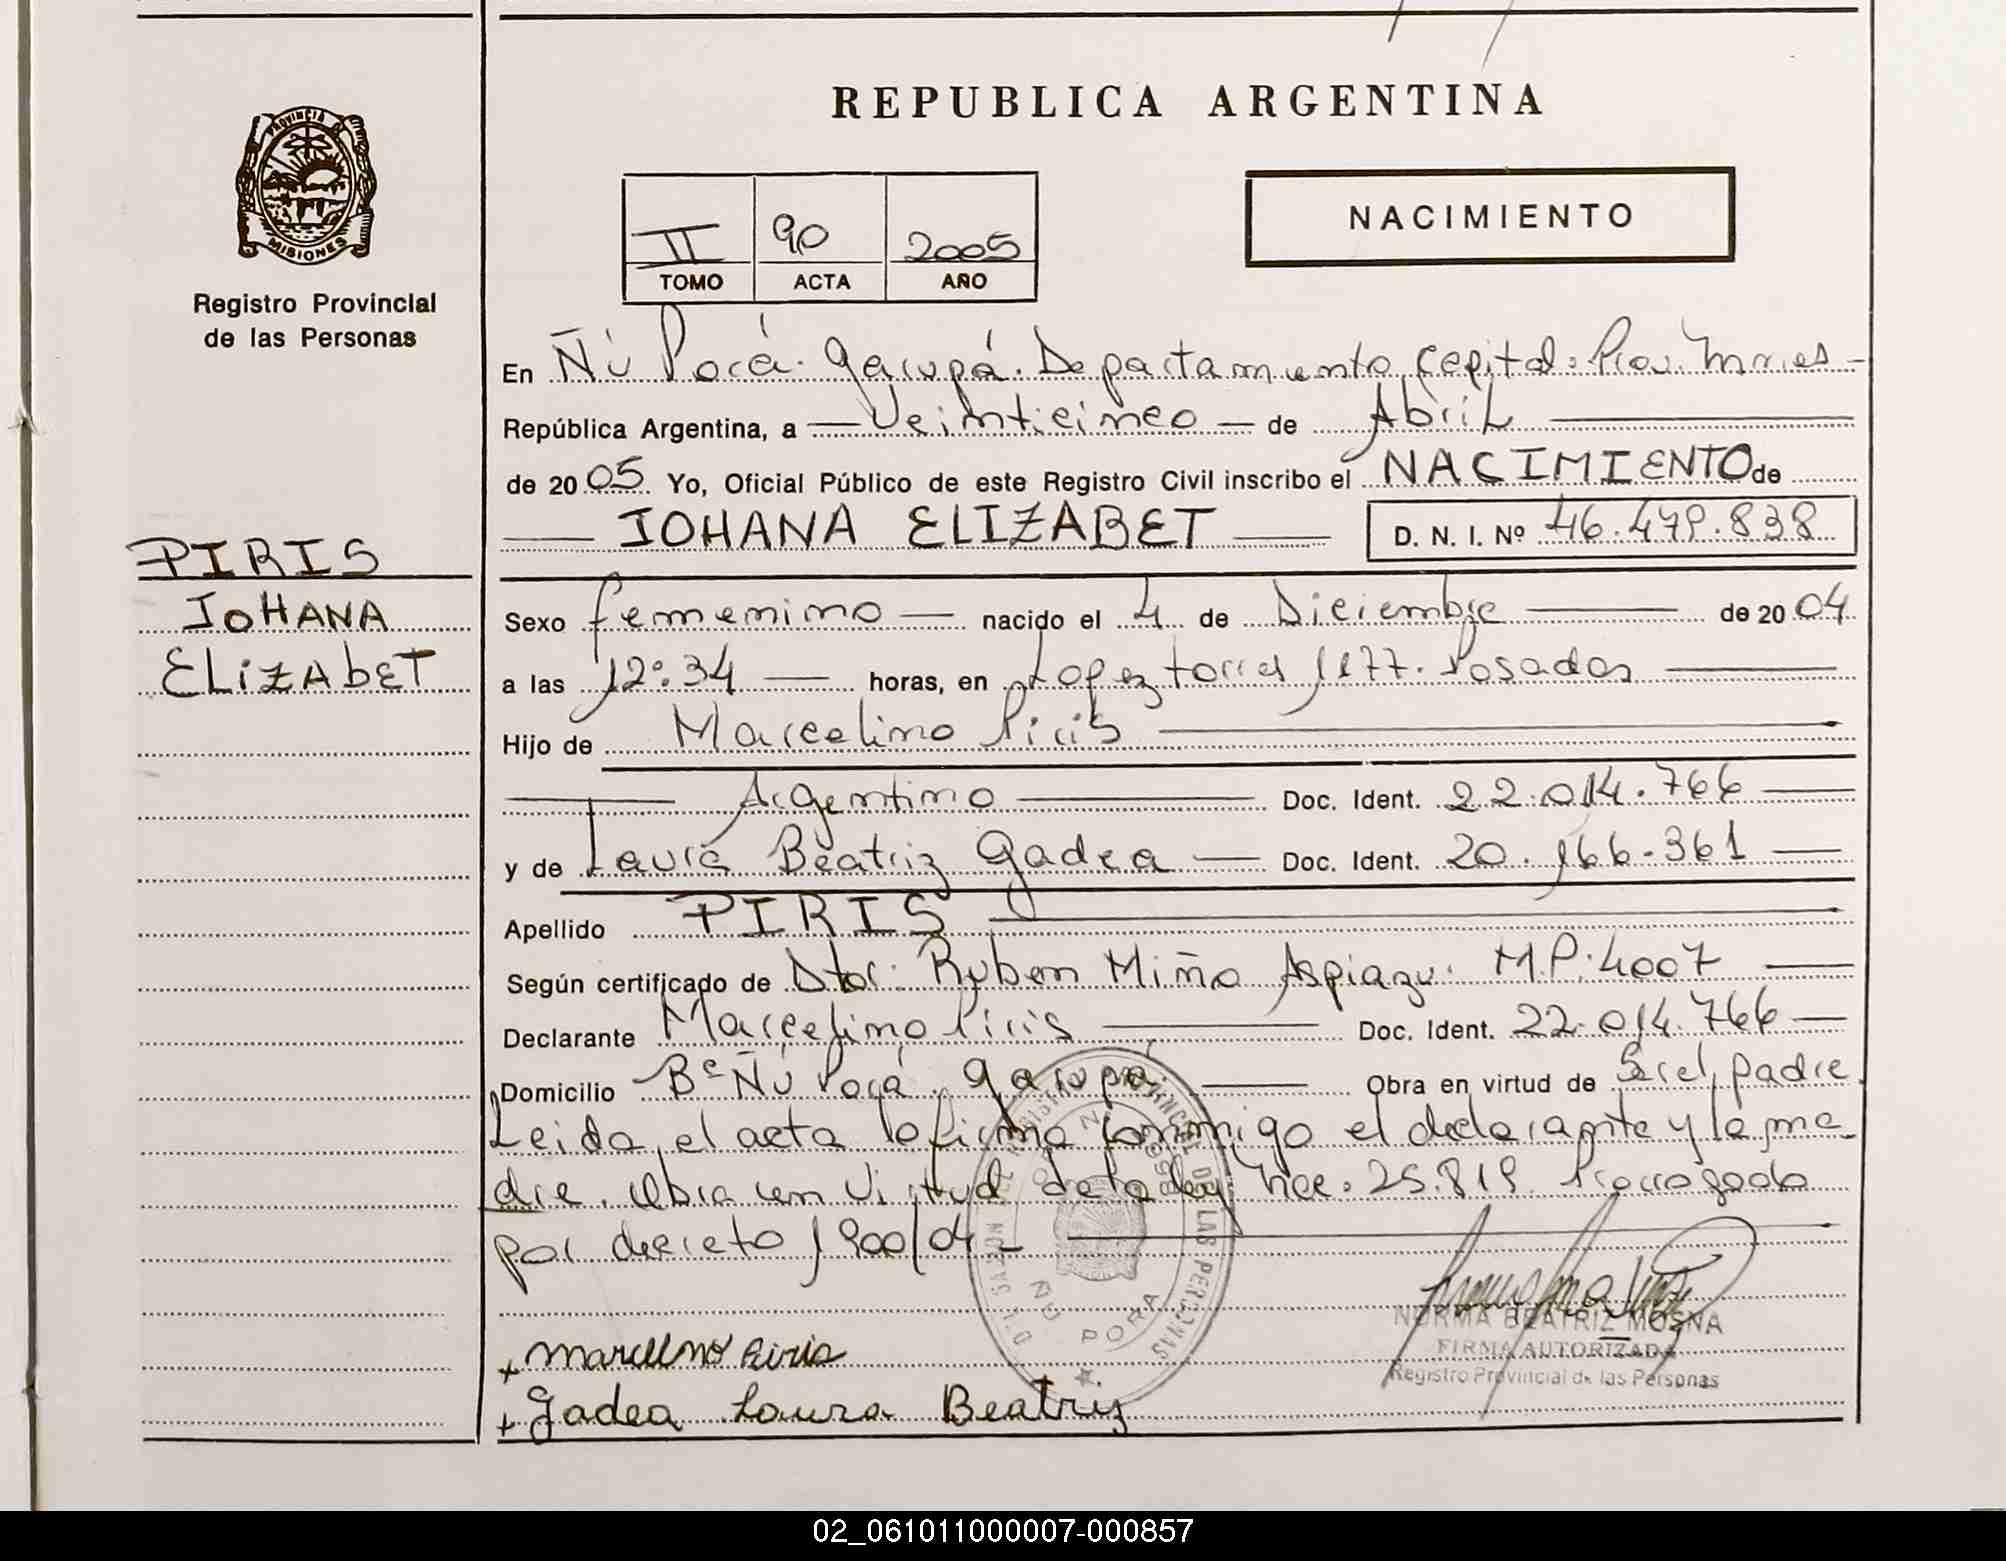 REPUBLICA ARGENTINA
PROVINCIA DE
MISIONES
Registro Provincial
de las Personas
II 90 2005
TOMO ACTA AÑO
NACIMIENTO
En Ñu Porá. Garupá. Departamento Capital. Prov. Mnes -
República Argentina, a — Veinticinco — de Abril
de 2005 Yo, Oficial Público de este Registro Civil inscribo el NACIMIENTO de
— JOHANA ELIZABET — D. N. I. Nº 46.479.838
PIRIS
JOHANA
ELIZAbET
Sexo femenino — nacido el 4 de Diciembre — de 2004
a las 12:34 — horas, en Lopez torres 1177. Posadas —
Hijo de Marcelino Piris —
— Argentino — Doc. Ident. 22.014.766 —
y de Laura Beatriz Gadea — Doc. Ident. 20.166.361 —
Apellido PIRIS —
Según certificado de Dtor. Ruben Miño Aspiazu. M.P. 4007 —
Declarante Marcelino Piris — Doc. Ident. 22.014.766 —
Domicilio Bº Ñu Porá. Garupá. — Obra en virtud de Ser el padre
Leida el acta la firma conmigo el declarante y la ma
dre. Obra en Virtud de la ley Nce. 25.819 Prorrogada
por decreto 1900/04 - —
DEL REGISTRO PROVINCIAL DE LAS PERSONAS
ÑU PORA
NORMA BEATRIZ MOSNA
FIRMA AUTORIZADA
Registro Provincial de las Personas
+ Marcelino Piris
+ Gadea Laura Beatriz
02_061011000007-000857